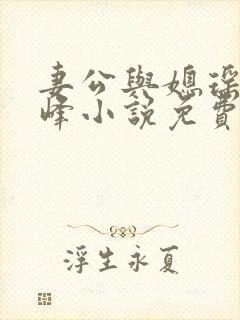 妻公與媳瑶
峰小說免費
浮生永夏